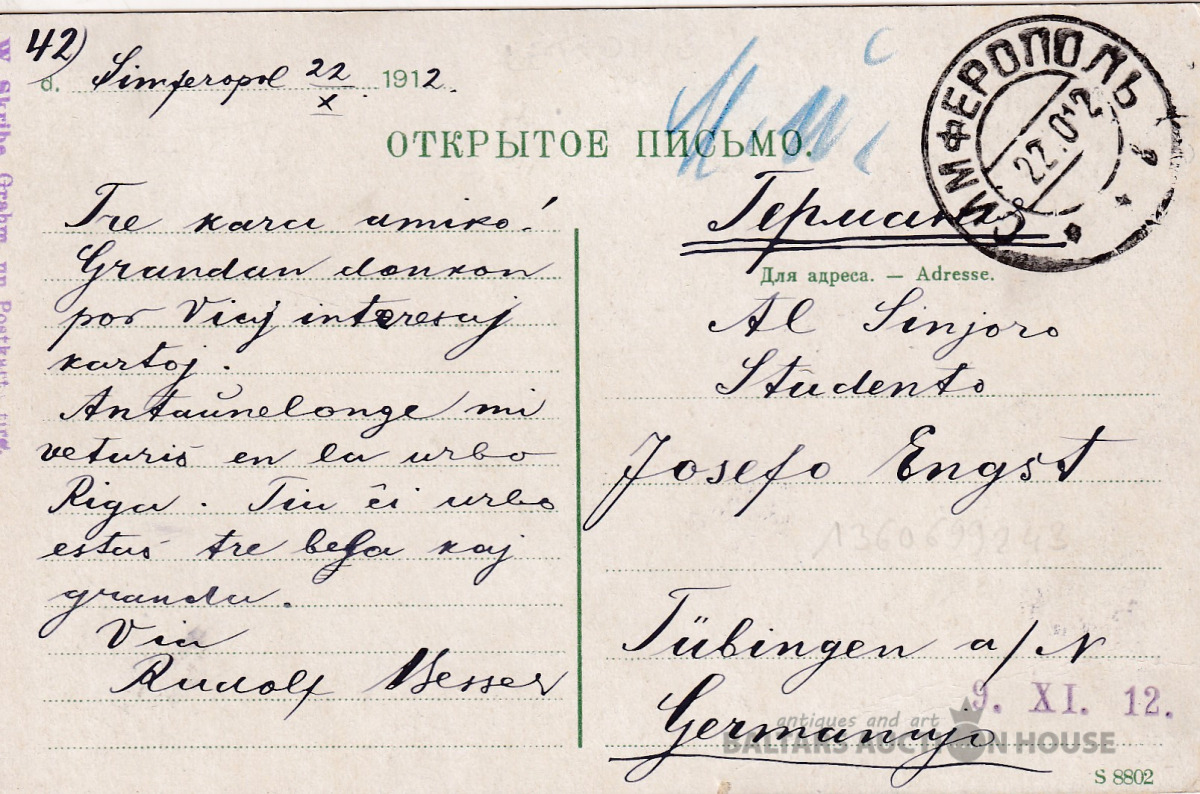 42)
d. Simferopol 22/X. 1912.
ОТКРЫТОЕ ПИСЬМО.
СИМФЕРОПОЛЬ
22.10.12
Tre kara amiko!
Grandan donkon
por Viaj interesaj
kartoj.
Antaŭnelonge mi
veturis en la urbo
Riga. Tiu ĉi urbo
estas tre bela kaj
granda.
Via
Rudolf Besser
Германія
Для адреса. — Adresse.
Al Sinjoro
Studento
Josefo Engst
1360699243
Tübingen a/N
9. XI. 12.
Germanujo
antiques and art
BALTARS AUCTION HOUSE
S 8802
W Skribe Grahm